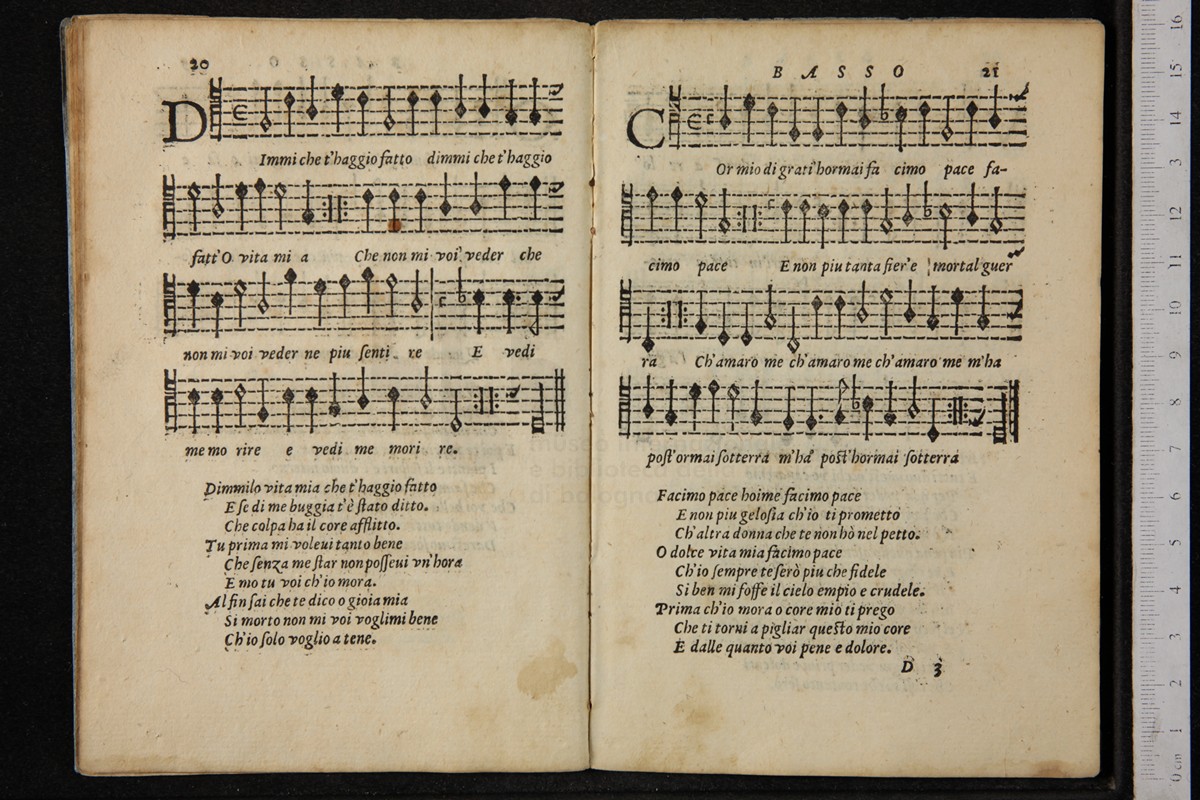 20
D
Immi che t'haggio fatto dimmi che t'haggio
fatt'O vita mi a Che non mi voi veder che
non mi voi veder ne piu senti re E vedi
me mo rire e vedi me mori re.
Dimmilo vita mia che t'haggio fatto
E se di me buggia t'è stato ditto.
Che colpa ha il core afflitto.
Tu prima mi voleui tanto bene
Che senza me star non posseui vn'hora
E mo tu voi ch'io mora.
Al fin sai che te dico o gioia mia
Si morto non mi voi voglimi bene
Ch'io solo voglio a tene.
BASSO 21
C
Or mio di grati'hormai fa cimo pace fa-
cimo pace E non piu tanta fier'e mortal guer
ra Ch'amaro me ch'amaro me ch'amaro me m'ha
post'ormai sotterra m'ha post'hormai sotterra
Facimo pace hoime facimo pace
E non piu gelosia ch'io ti prometto
Ch'altra donna che te non hò nel petto.
O dolce vita mia facimo pace
Ch'io sempre te serò piu che fidele
Si ben mi fosse il cielo empio e crudele.
Prima ch'io mora o core mio ti prego
Che ti torni a pigliar questo mio core
E dalle quanto voi pene e dolore.
D 3
museo
e biblioteca
di bologna
16
15
14
13
12
11
10
9
8
7
6
5
4
3
2
1
0 cm